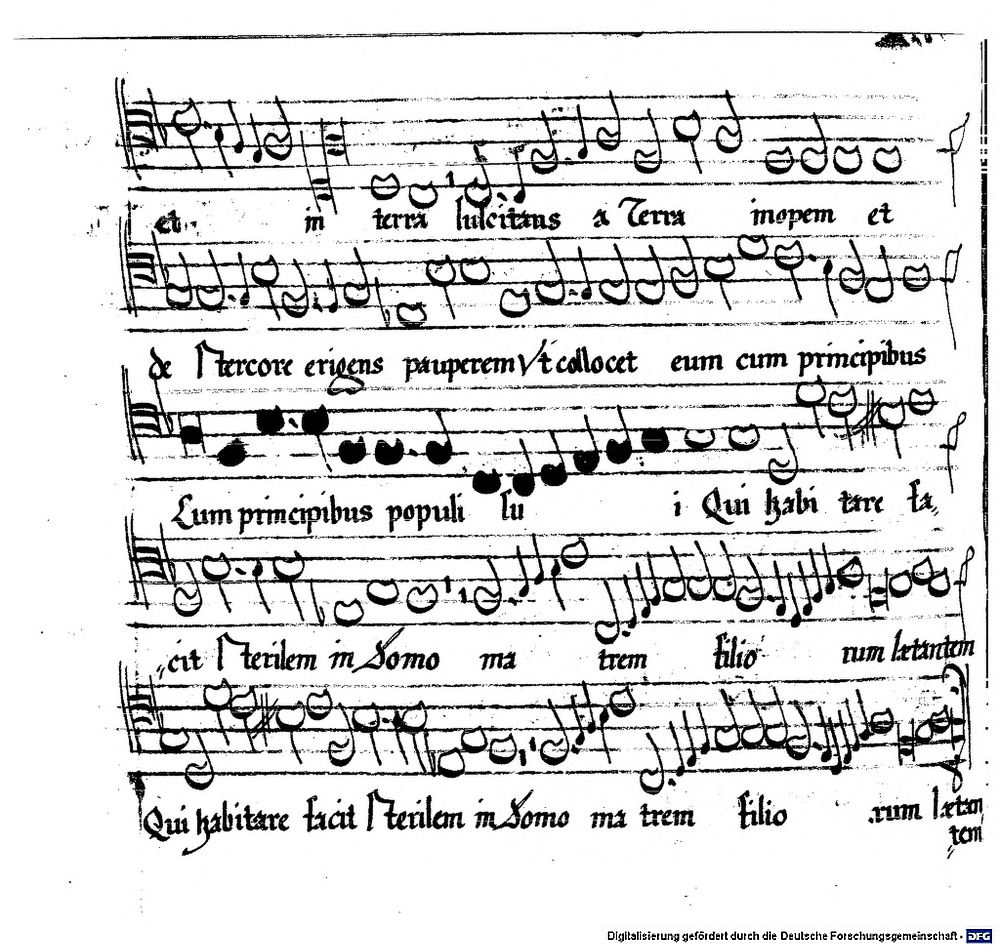 et in terra suscitans a Terra inopem et
de stercore erigens pauperem Vt collocet eum cum principibus
Cum principibus populi su i Qui habi tare fa,
,cit sterilem in Domo ma trem filio rum lætantem
Qui habitare facit sterilem in Domo ma trem filio rum lætan
tem
Digitalisierung gefördert durch die Deutsche Forschungsgemeinschaft - DFG